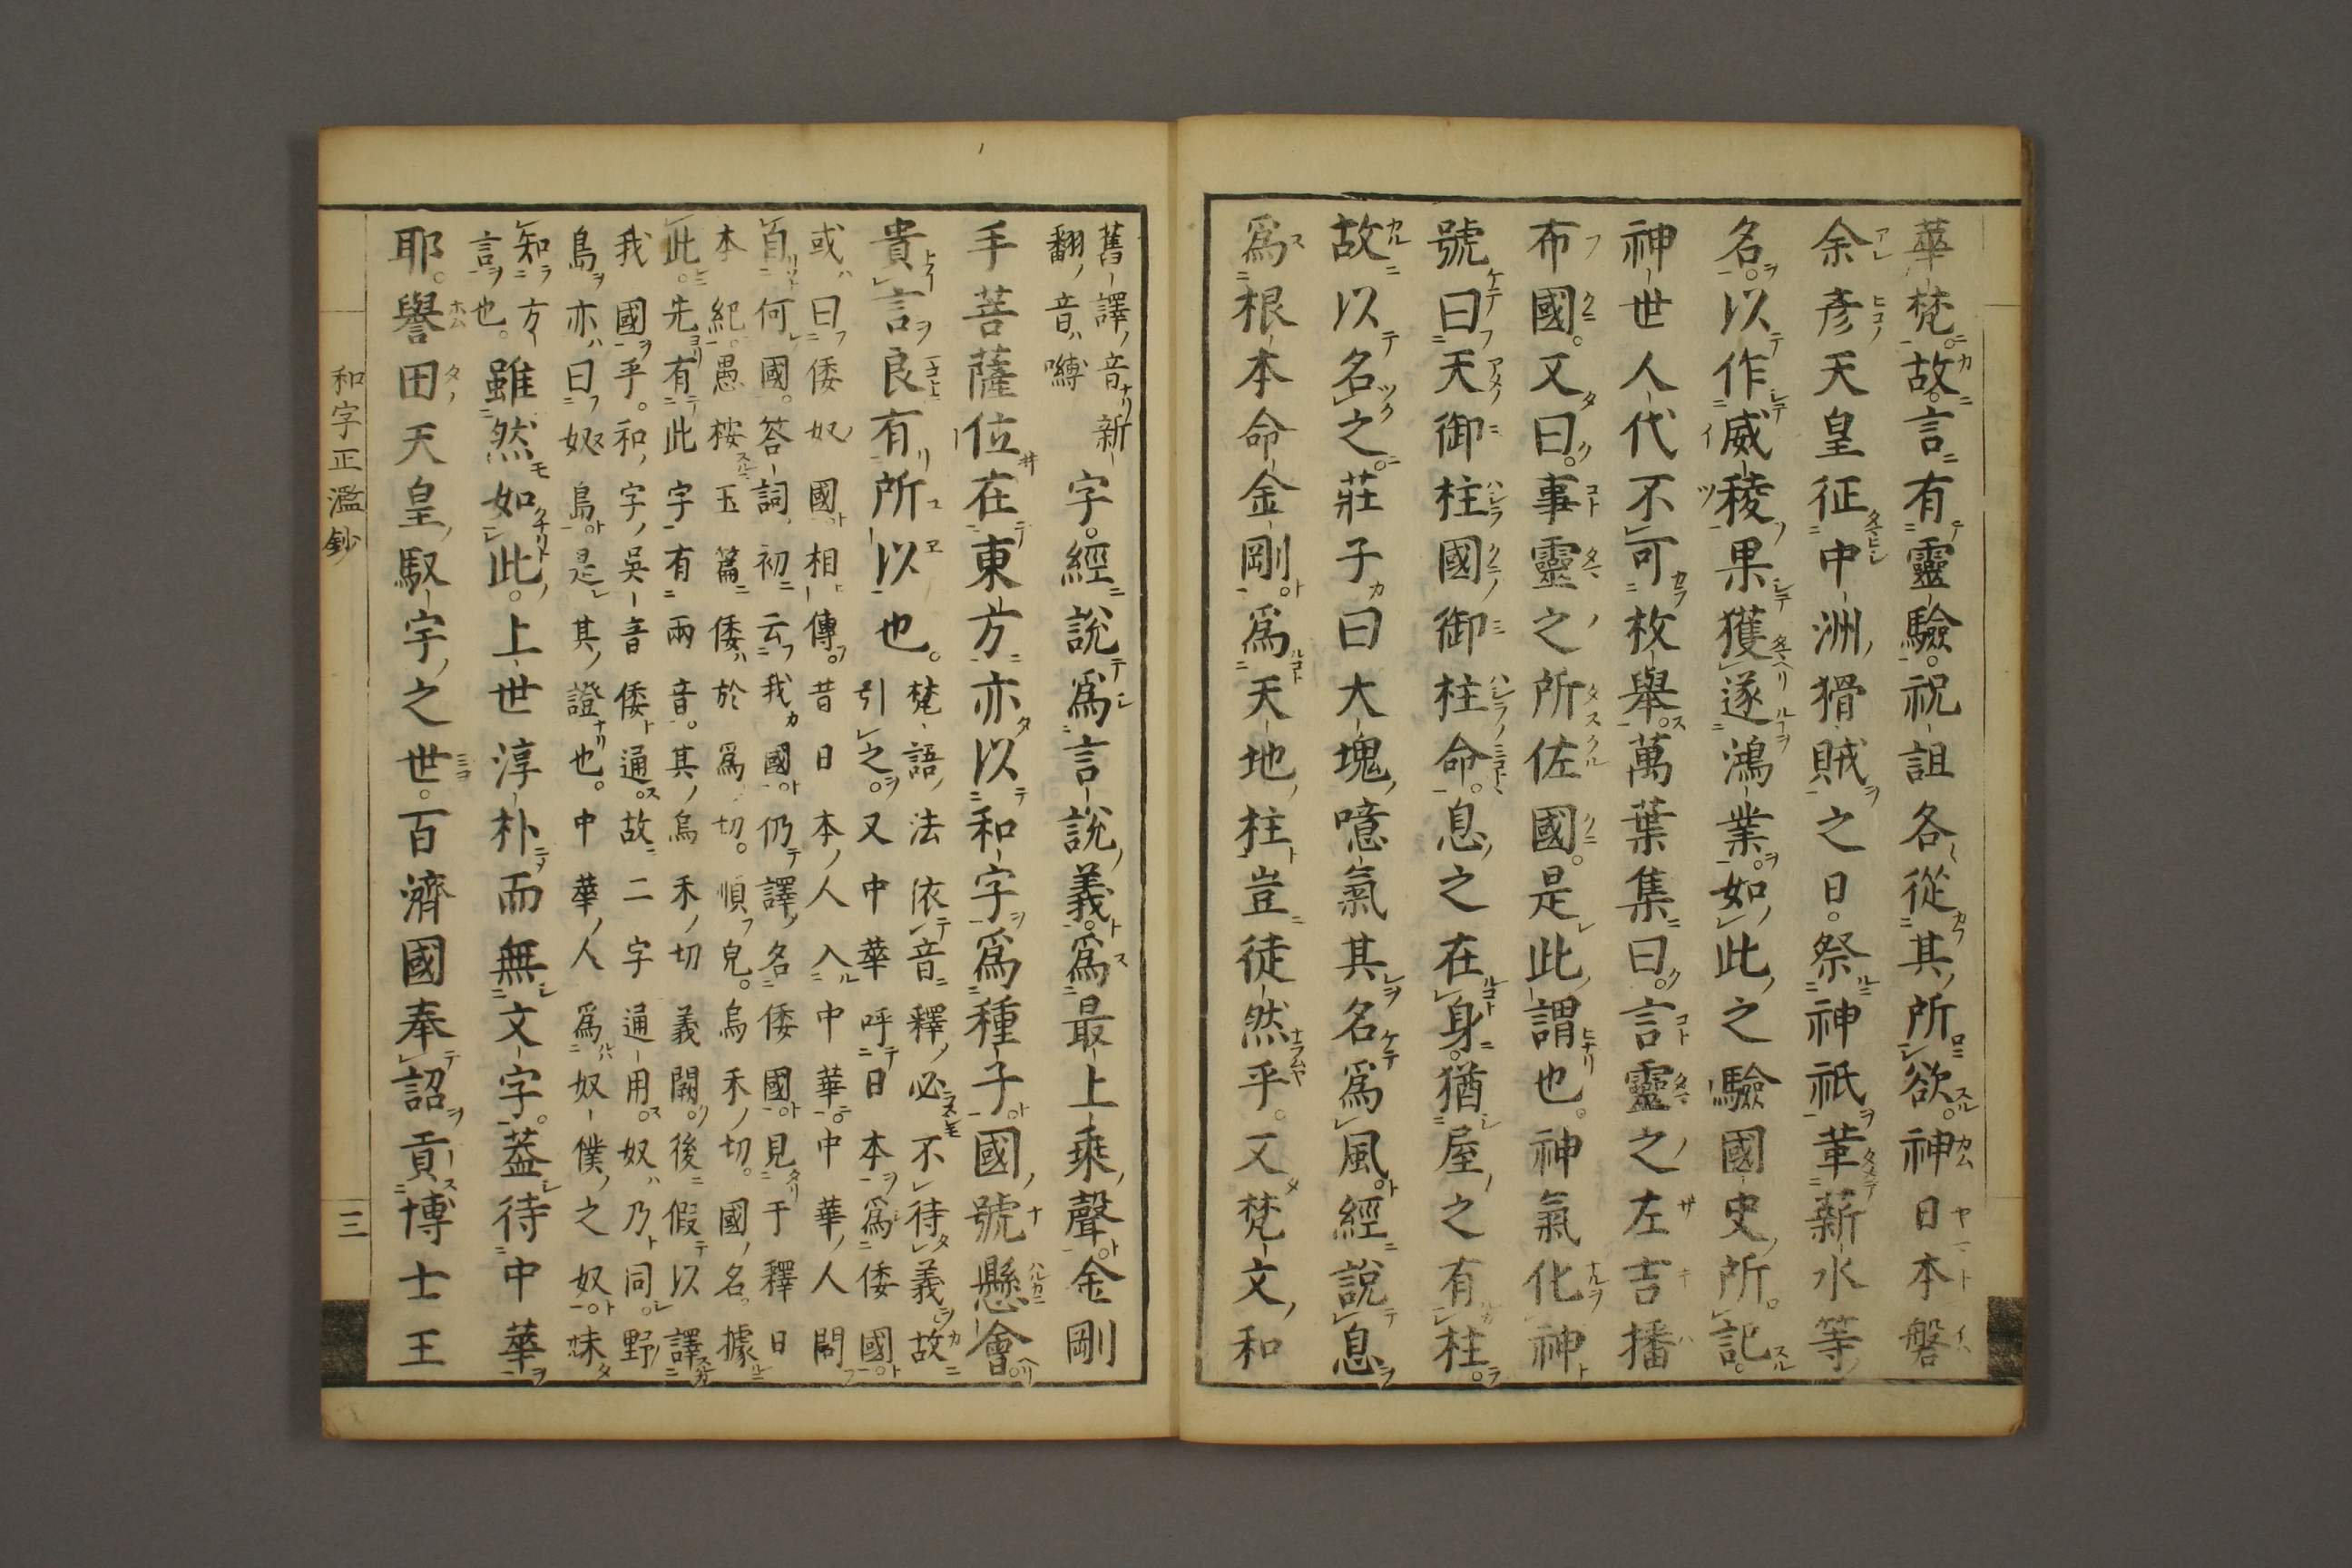 華梵故言有靈驗祝詛各從其所欲神日本磐
余彥天皇征中洲猾賊之日祭神祇葷薪水等
名以作威稜果獲遂鴻業如此之驗國史所記
神世人代不可枚舉萬葉集曰言靈之左吉播
布國又曰事靈之所佐國是此謂也神氣化神
號曰天御柱國御柱命息之在身猶屋之有柱
故以名之莊子曰大塊噫氣其名爲風經說息
爲根本命金剛爲天地柱豈徒然乎又梵文和
舊譯音新
翻音嚩
字經說爲言說義爲最上乘聲金剛
手菩薩位在東方亦以和字爲種子國號懸會
貴言良有所以也
梵語法依音釋必不待義故
引之又中華呼日本爲倭國
或曰倭奴國相傳昔日本人入中華中華人問
自何國答詞初云我國仍譯名倭國見于釋日
本紀愚桉玉篇倭於爲切順皃烏禾切國名據
此先有此字有兩音其烏禾切義闕後假以譯
我國乎和字吳音倭通故二字通用奴乃同野
島亦曰奴島是其證也中華人爲奴僕之奴妹
知方
言也
雖然如此上世淳朴而無文字蓋待中華
耶譽田天皇馭宇之世百濟國奉詔貢博士王
和字正濫鈔
三